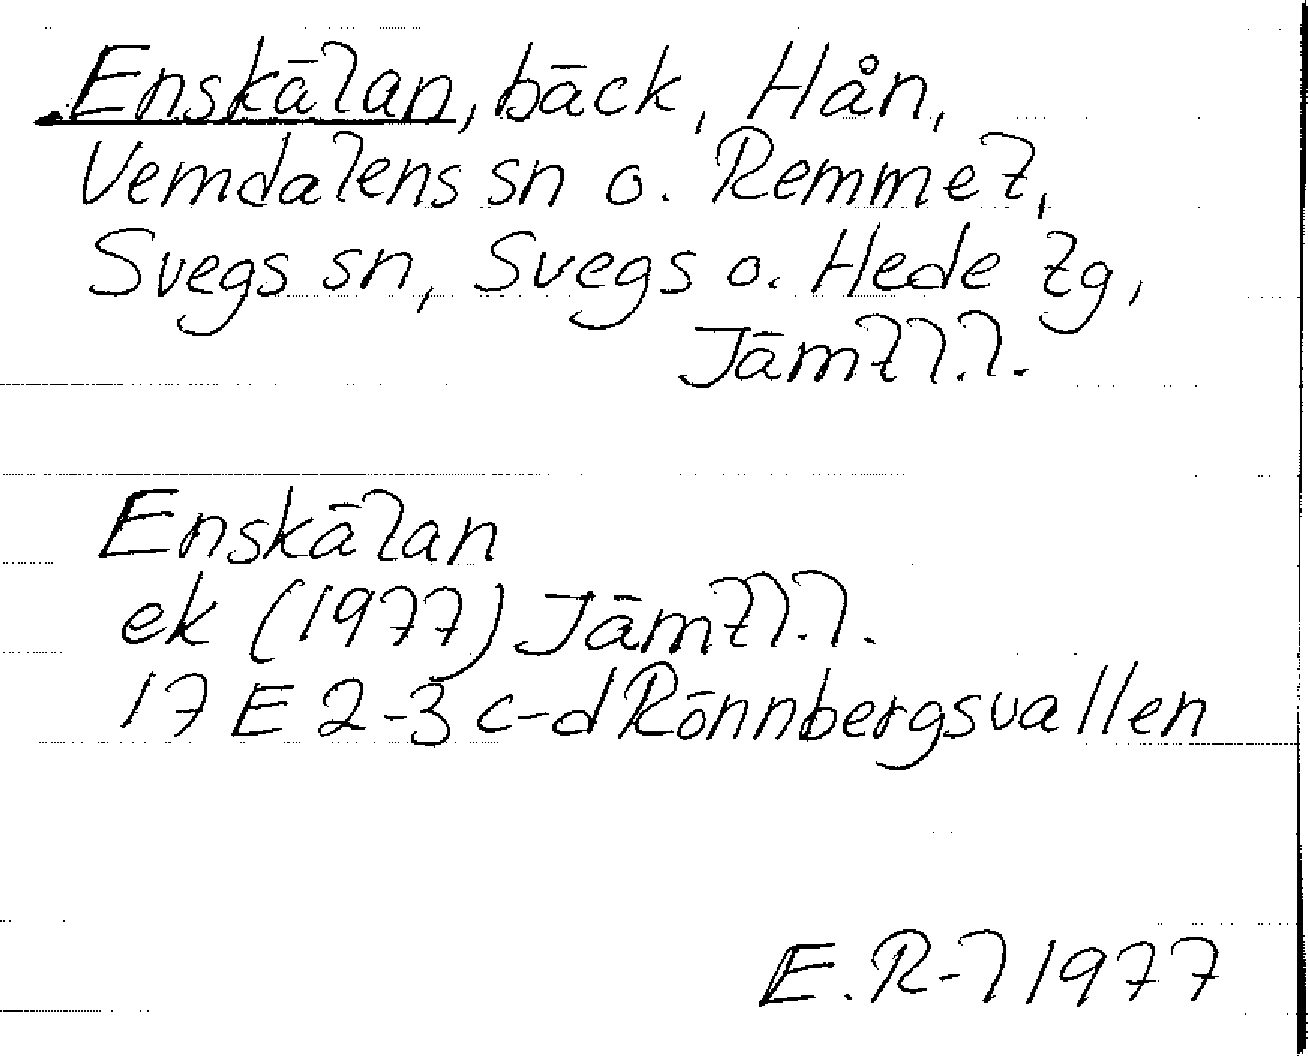 Enskälan, bäck, Hån,
Vemdalens sn o. Remmet,
Svegs sn, Svegs o. Hede tg,
Jämtl.l.
Enskälan
ek (1977) Jämtl.l.
17 E 2-3 c-d Rönnbergsvallen
E.R-l 1977